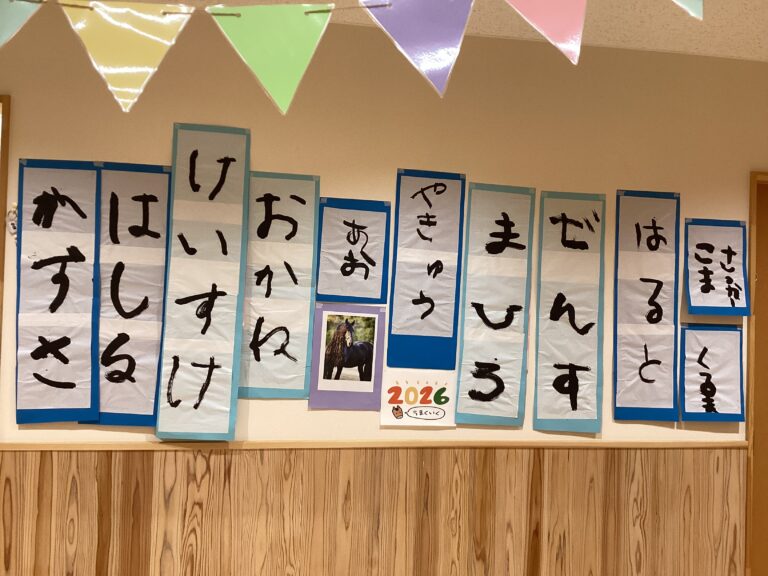 さっか
こま
くるま
はると
ぜんす
まひろ
やきゅう
2026
うまくいく
あお
おかね
けいすけ
はしる
かずさ